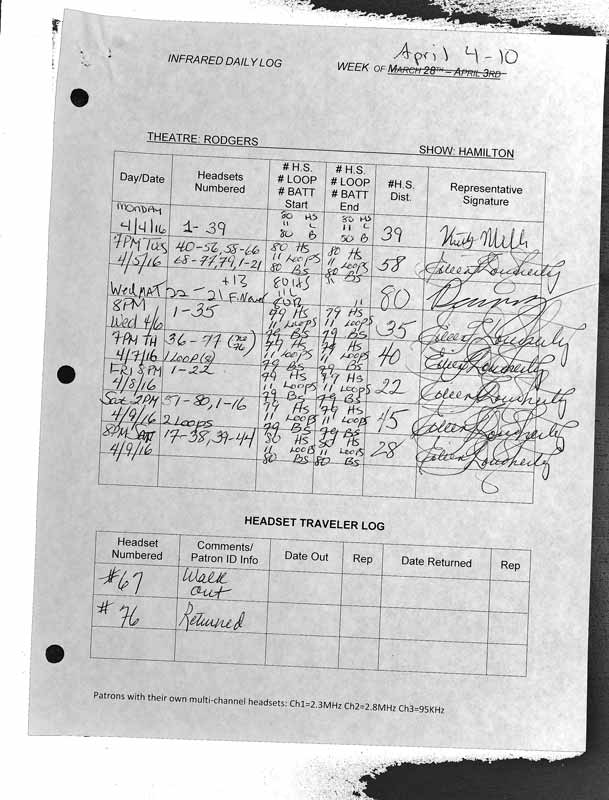 April 4-10
INFRARED DAILY LOG WEEK OF MARCH 28TH – APRIL 3RD
THEATRE: RODGERS SHOW: HAMILTON
Day/Date Headsets Numbered # H.S. # LOOP # BATT Start # H.S. # LOOP # BATT End #H.S. Dist. Representative Signature
MONDAY 4/4/16 1-39 80 HS 11 L 80 B 80 HS 11 L 50 B 39
7PM Tues 4/5/16 40-56, 58-66 68-77, 79, 1-21 80 HS 11 Loops 80 BS 80 HS 11 Loops 80 BS 58 Eileen Dougherty
Wed MAT 22 - 21 +13 80 HS 11 L 80 B 11 80
8PM Wed 4/6 1-35 79 HS 11 Loops 79 BS 79 HS 11 Loops 79 BS 35 Eileen Dougherty
7PM TH 4/7/16 36-77 76 1 Loop(s) 79 HS 11 Loops 79 BS 79 HS 11 Loops 79 BS 40 Eileen Dougherty
FRI 8PM 4/8/16 1-22 79 HS 11 Loops 79 BS 79 HS 11 Loops 79 BS 22 Eileen Dougherty
Sat 2PM 4/9/16 37-80, 1-16 2 Loops 79 HS 11 Loops 79 BS 79 HS 11 Loops 79 BS 45 Eileen Dougherty
8PM Sat 4/9/16 17-38, 39-44 80 HS 11 Loops 80 BS 80 HS 11 Loops 80 BS 28 Eileen Dougherty
HEADSET TRAVELER LOG
Headset Numbered Comments/ Patron ID Info Date Out Rep Date Returned Rep
#67 Walk out
# 76 Returned
Patrons with their own multi-channel headsets: Ch1=2.3MHz Ch2=2.8MHz Ch3=95KHz